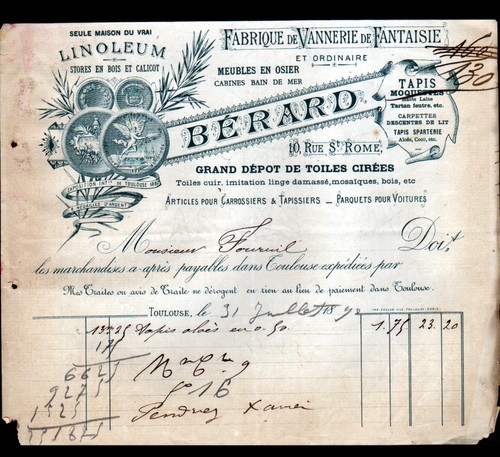 SEULE MAISON DU VRAI
LINOLEUM
STORES EN BOIS ET CALICOT
FABRIQUE DE VANNERIE DE FANTAISIE
ET ORDINAIRE
MEUBLES EN OSIER
CABINES BAIN DE MER
130
BÉRARD
10, RUE ST ROME
TAPIS
MOQUETTES
Haute Laine
Tartan feutre, etc.
CARPETTES
DESCENTES DE LIT
TAPIS SPARTERIE
Aloès, Coco, etc.
EXPOSITION INTle DE TOULOUSE
MÉDAILLES D'ARGENT
GRAND DÉPOT DE TOILES CIRÉES
Toiles cuir, imitation linge damassé, mosaïques, bois, etc
ARTICLES POUR CARROSSIERS & TAPISSIERS — PARQUETS POUR VOITURES
Monsieur Fourcuil Doit
les marchandises ci-après payables dans Toulouse expédiées par
Mes Traites ou avis de Traite ne dérogent en rien au lieu de paiement dans Toulouse.
TOULOUSE, le 31 Juillet 18
13 25 tapis aloès en 0.50 1.75 23.20
17
662
2275
1325
No 16